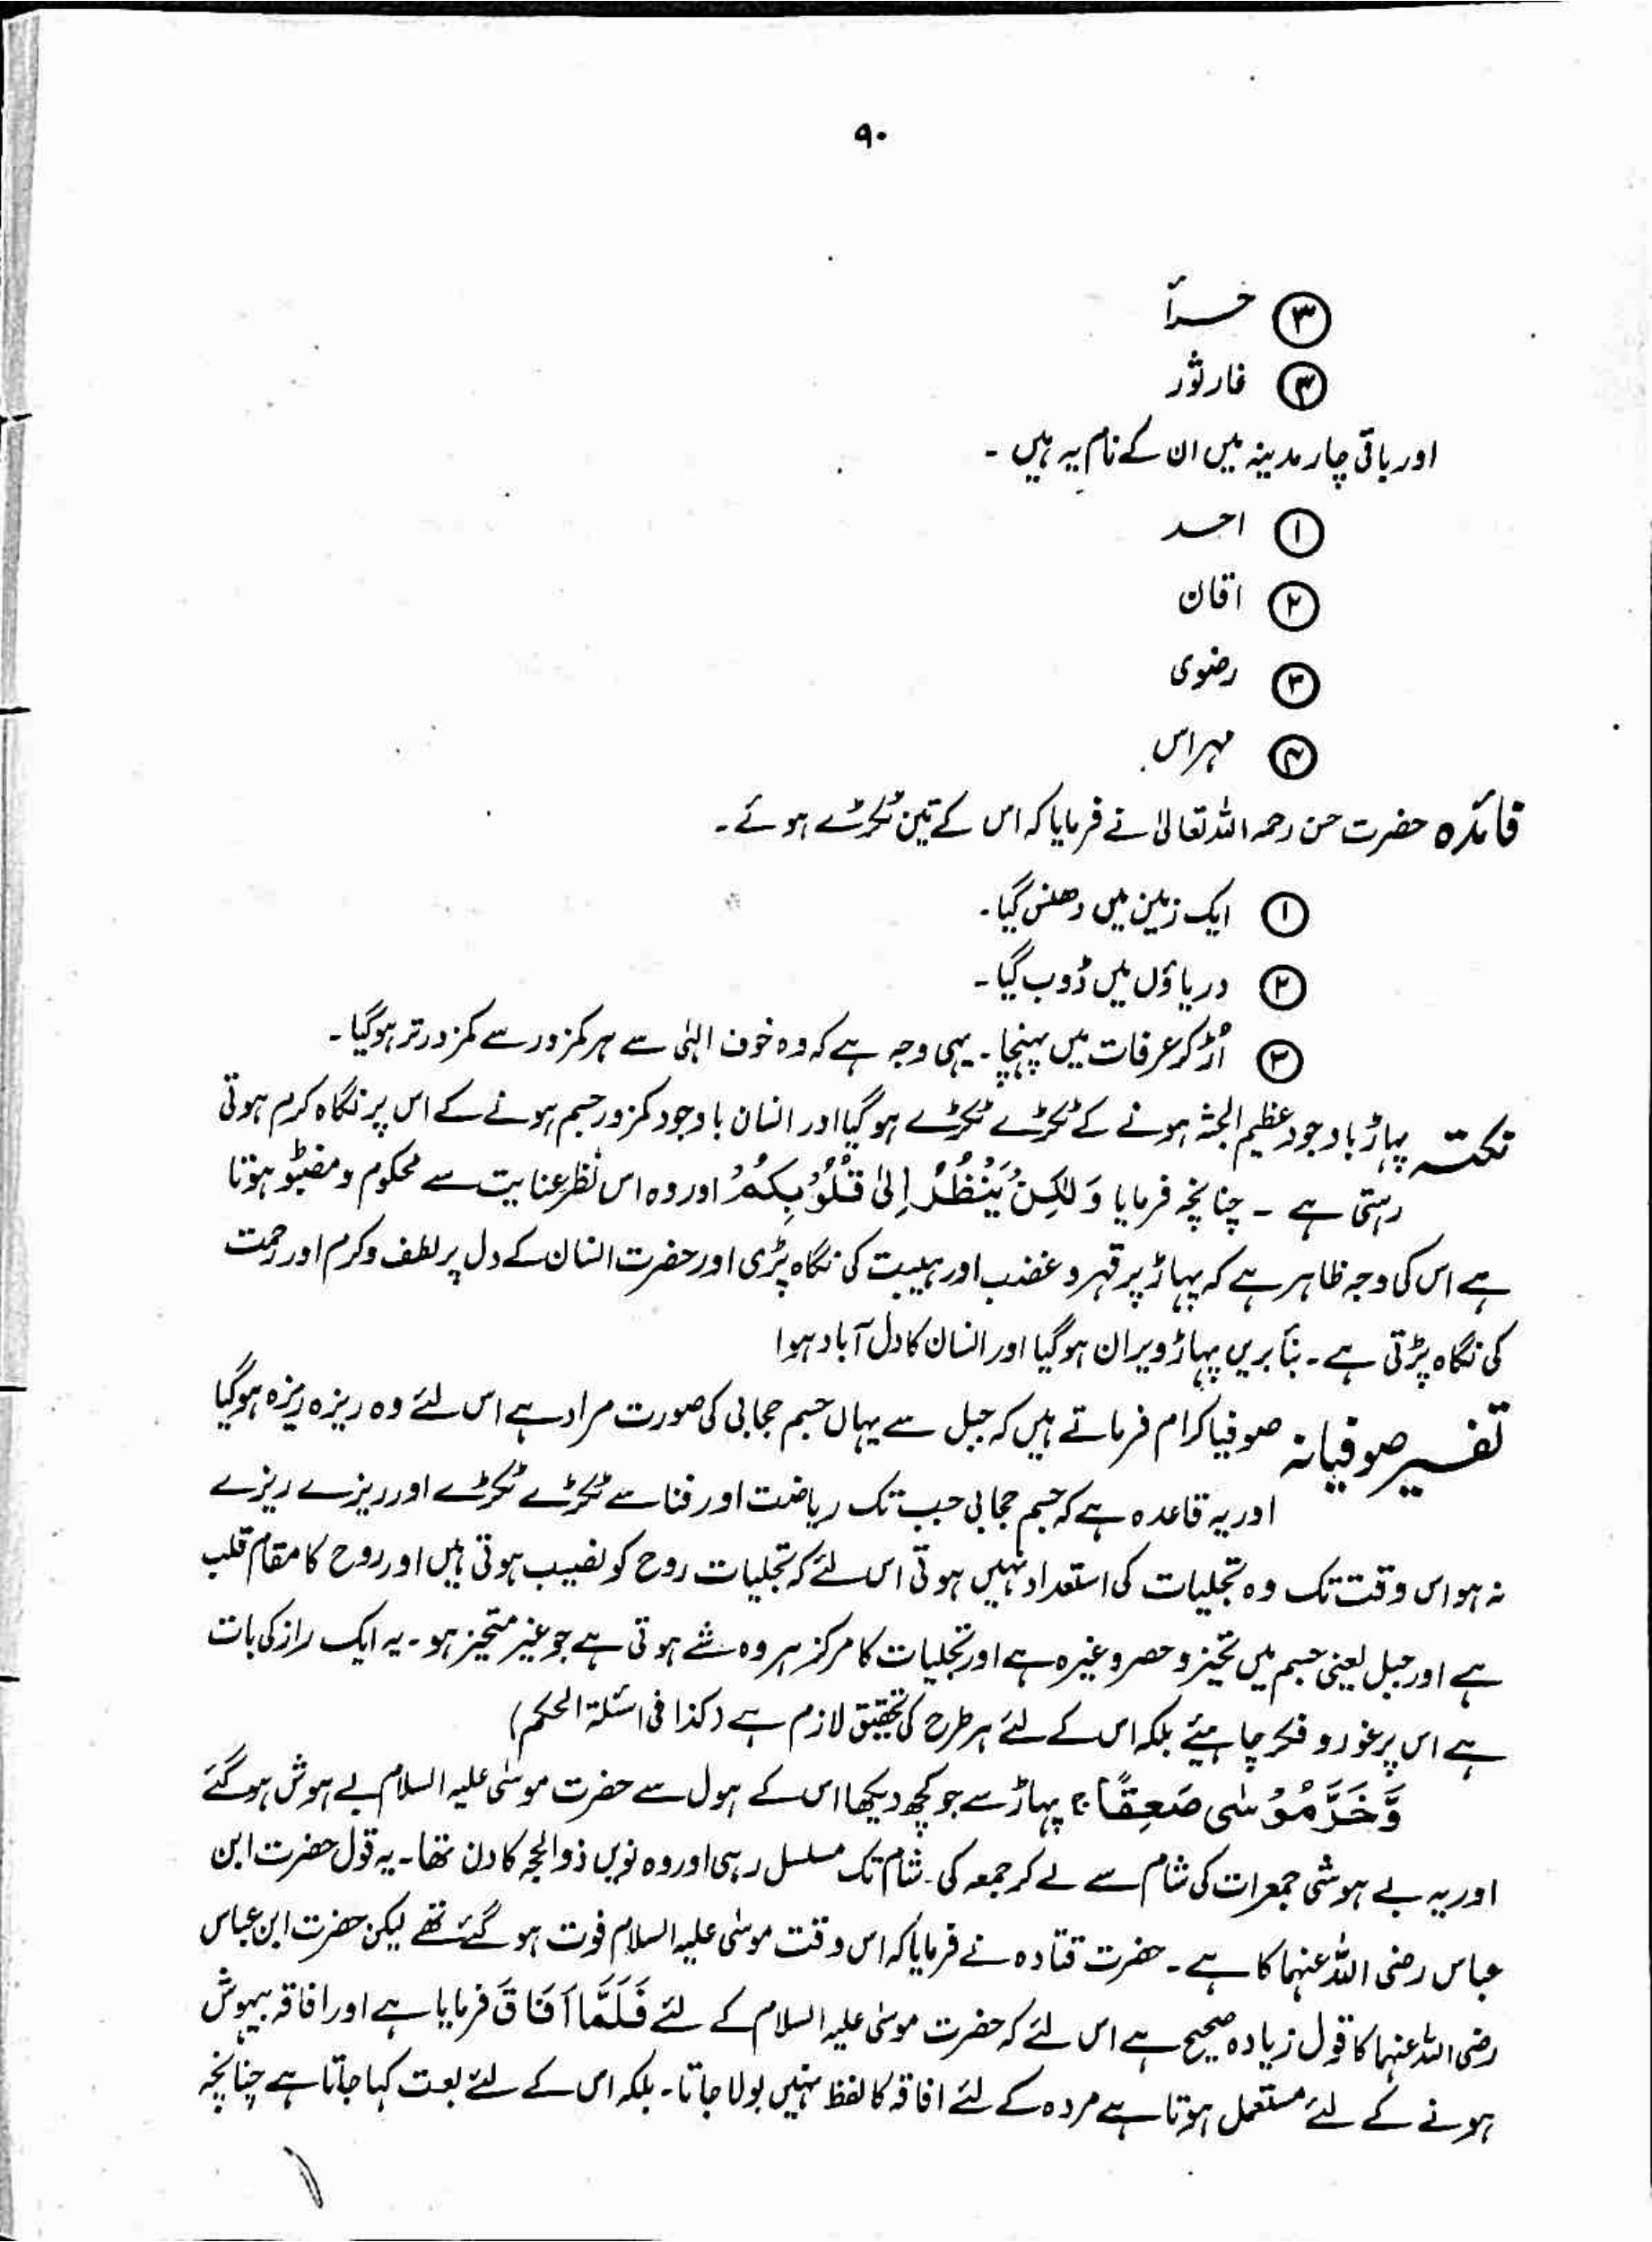 ۹۰
③ حرأ
④ غار ثور
اور باقی چار مدینہ میں ان کے نام یہ ہیں ۔
① احد
② اقان
③ رضوی
④ مہراس
فائدہ حضرت حسن رحمہ اللہ تعالیٰ نے فرمایا کہ اس کے تین ٹکڑے ہوئے ۔
① ایک زمین میں دھنس گیا ۔
② دریاؤں میں ڈوب گیا ۔
③ اُڑ کر عرفات میں پہنچا ۔ یہی وجہ ہے کہ وہ خوف الہٰی سے ہر کمزور سے کمزور تر ہو گیا ۔
نکتہ پہاڑ باوجود عظیم الجثہ ہونے کے ٹکڑے ٹکڑے ہو گیا اور انسان باوجود کمزور جسم ہونے کے اس پر نگاہ کرم ہوتی
رہتی ہے ۔ چنانچہ فرمایا وَلٰکِنْ یَنْظُرُ اِلیٰ قُلُوْبِکُمْ اور وہ اس نظر عنایت سے محکوم و مضبو ہوتا
ہے اس کی وجہ ظاہر ہے کہ پہاڑ پر قہر و غضب اور ہیبت کی نگاہ پڑی اور حضرت انسان کے دل پر لطف و کرم اور رحمت
کی نگاہ پڑتی ہے ۔ بنأبریں پہاڑ ویران ہو گیا اور انسان کا دل آباد ہوا
تفسیر صوفیانہ صوفیا کرام فرماتے ہیں کہ جبل سے یہاں جسم حجابی کی صورت مراد ہے اس لئے وہ ریزہ ریزہ ہو گیا
اور یہ قاعدہ ہے کہ جسم حجابی جب تک ریاضت اور فنا سے ٹکڑے ٹکڑے اور ریزے ریزے
نہ ہو اس وقت تک وہ تجلیات کی استعداد نہیں ہوتی اس لئے کہ تجلیات روح کو نصیب ہوتی ہیں اور روح کا مقام قلب
ہے اور جبل یعنی جسم میں تحیز و حصر وغیرہ ہے اور تجلیات کا مرکز ہر وہ شے ہوتی ہے جو غیر متحیز ہو ۔ یہ ایک راز کی بات
ہے اس پر غور و فکر چاہیئے بلکہ اس کے لئے ہر طرح کی تحقیق لازم ہے (کذا فی اسئلۃ الحکم)
وَّخَرَّ مُوْسٰی صَعِقًا ج پہاڑ سے جو کچھ دیکھا اس کے ہول سے حضرت موسٰی علیہ السلام بے ہوش ہو گئے
اور یہ بے ہوشی جمعرات کی شام سے لے کر جمعہ کی شام تک مسلسل رہی اور وہ نویں ذوالحجہ کا دن تھا ۔ یہ قول حضرت ابن
عباس رضی اللہ عنہما کا ہے ۔ حضرت قتادہ نے فرمایا کہ اس وقت موسٰی علیہ السلام فوت ہو گئے تھے لیکن حضرت ابن عباس
رضی اللہ عنہما کا قول زیادہ صحیح ہے اس لئے کہ حضرت موسٰی علیہ السلام کے لئے فَلَمَّا اَفَاقَ فرمایا ہے اور افاقہ بیہوش
ہونے کے لئے مستعمل ہوتا ہے مردہ کے لئے افاقہ کا لفظ نہیں بولا جاتا ۔ بلکہ اس کے لئے بعث کہا جاتا ہے چنانچہ